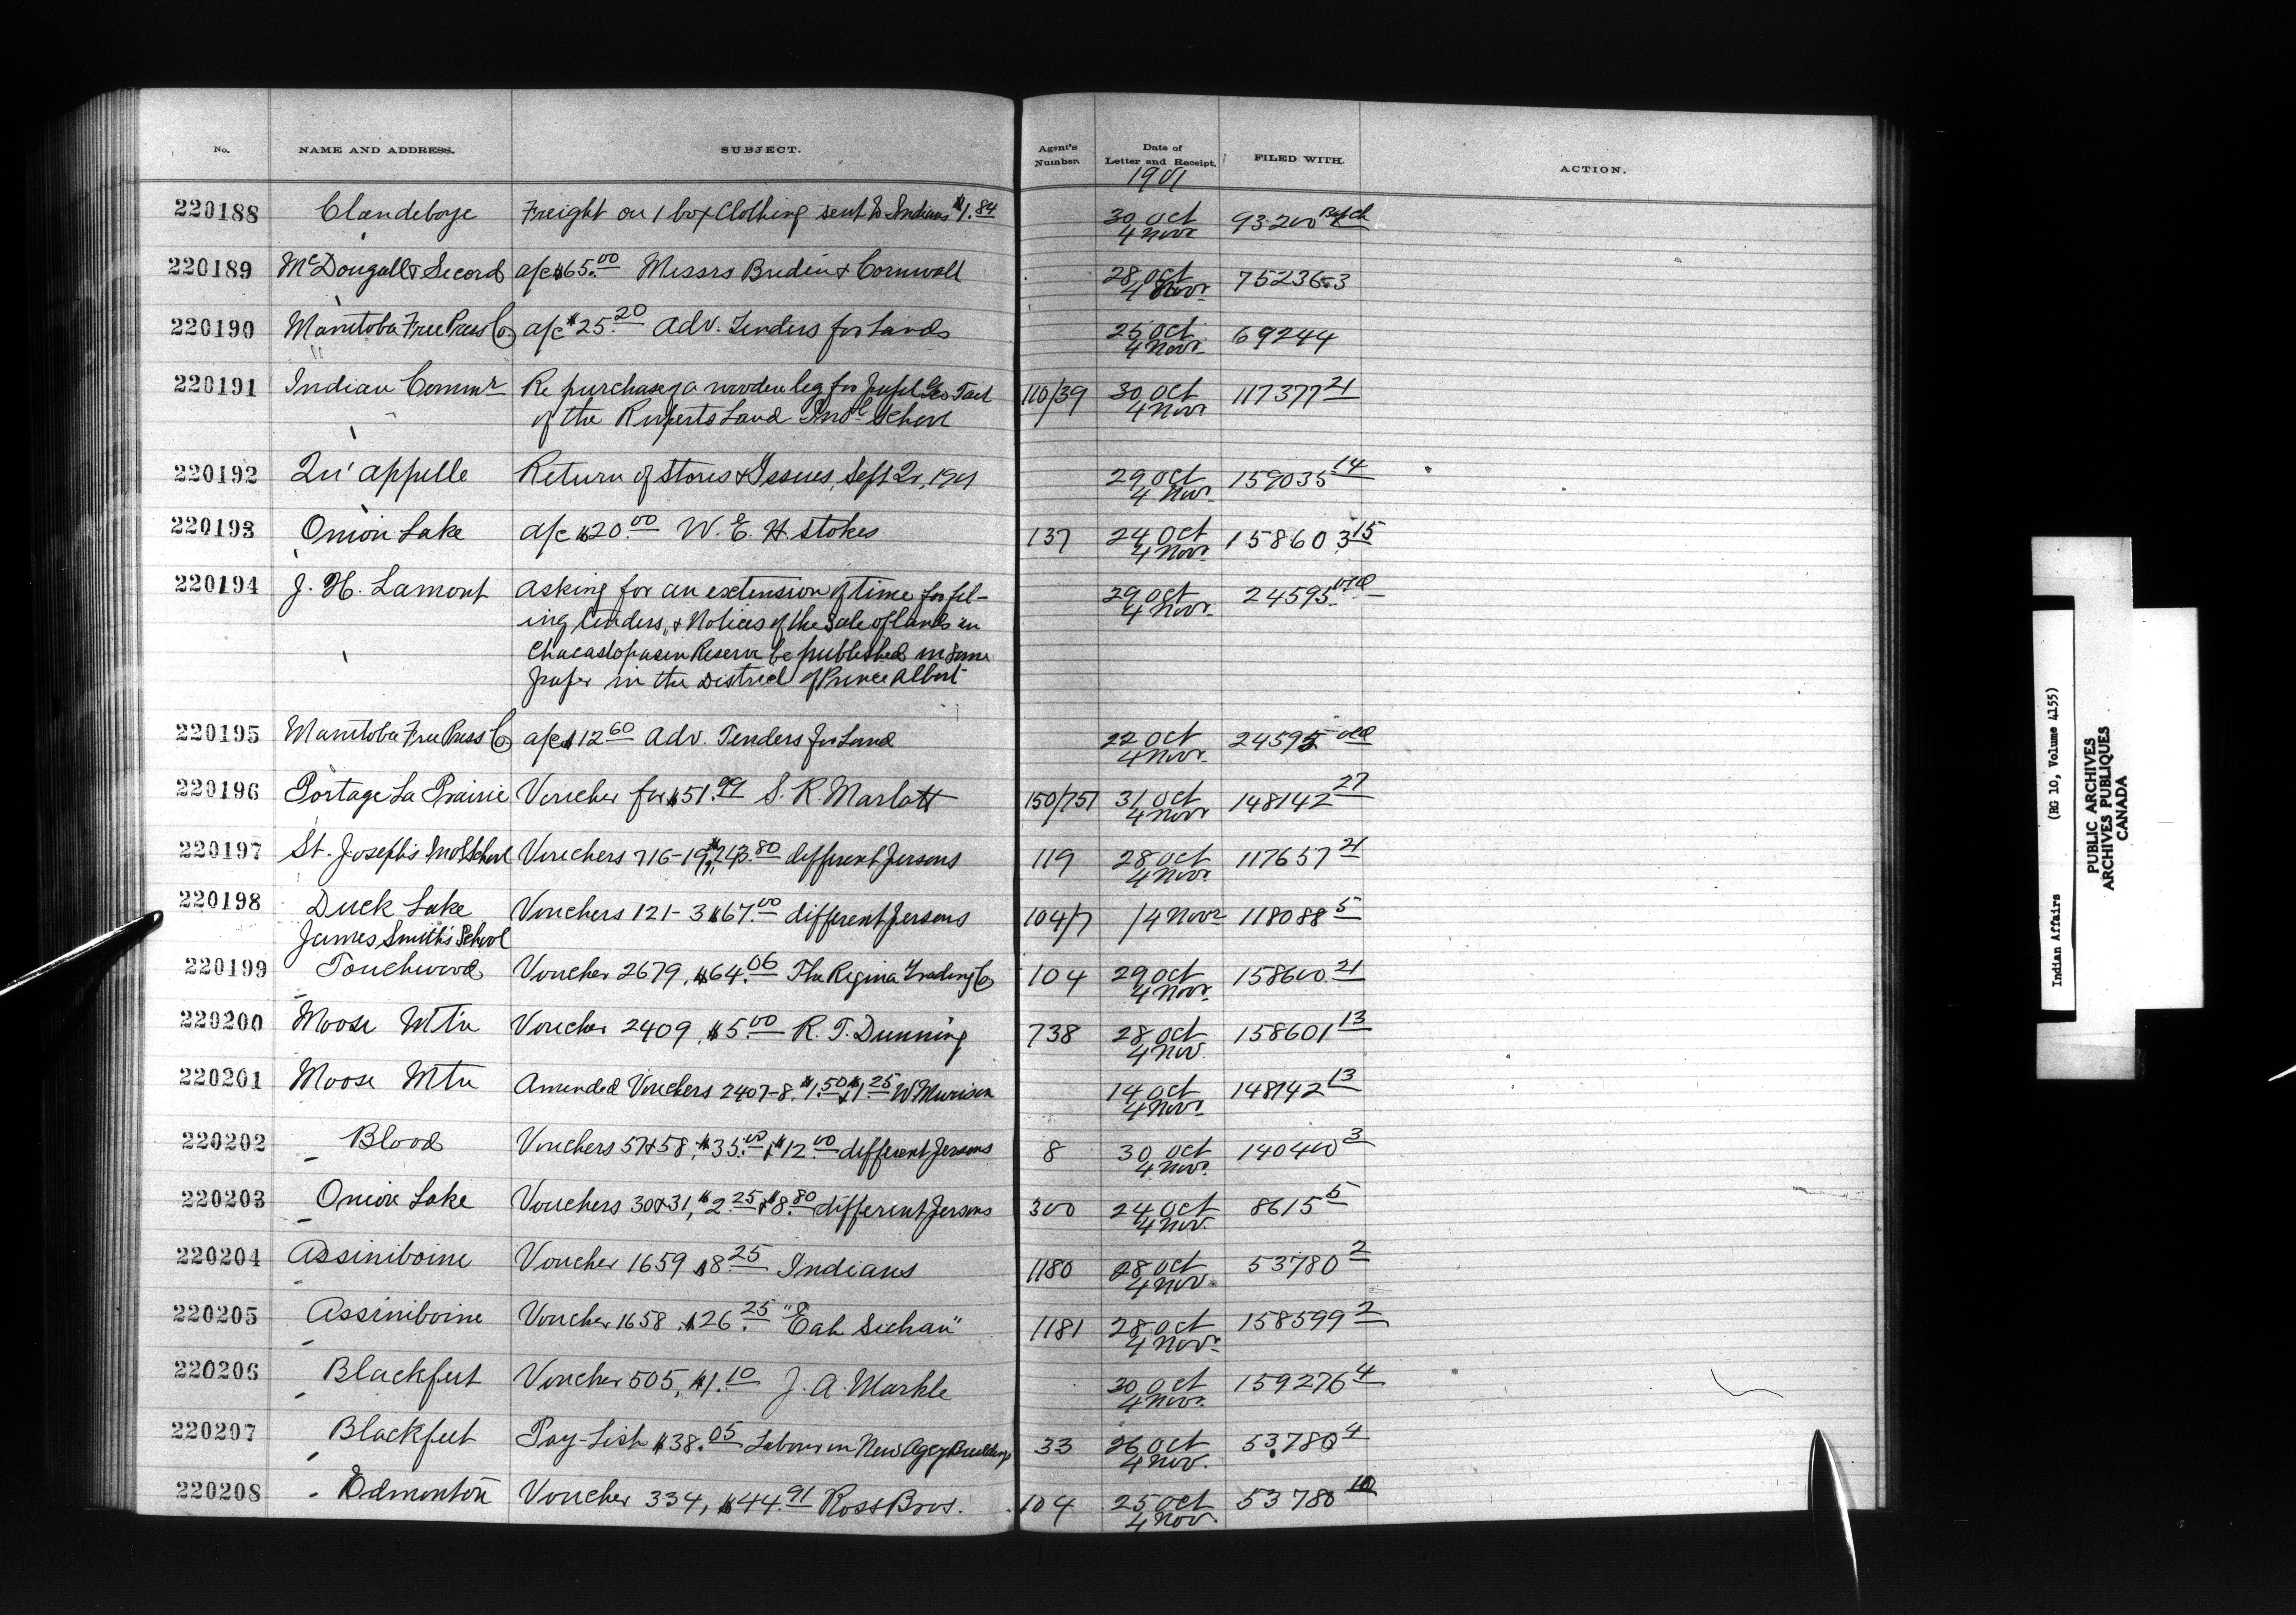 No. NAME AND ADDRESS. SUBJECT. Agent's Number. Date of Letter and Receipt. FILED WITH. ACTION.
1901
220188 Clandeboye Freight on 1 box Clothing sent to Indians $1.84 30 Oct 93200
4 Novr
220189 McDougall & Secord a/c $65.00 Messrs Bredin & Cornwall 28 Oct 75236-3
4 Novr
220190 Manitoba Free Press Co a/c $25.20 Adv. Tenders for Lands 25 Oct 69244
4 Novr
220191 Indian Commr Re purchase of a wooden leg for Pupil Geo Tait 110/39 30 Oct 117377 21
of the Ruperts Land Indl School 4 Novr
220192 Qu'appelle Return of Stores & Issues, Sept Qr, 1901 29 Oct 159035 14
4 Novr
220193 Onion Lake a/c $20.00 W. E. H. Stokes 137 24 Oct 158603 15
4 Novr
220194 J. H. Lamont Asking for an extension of time for fil- 29 Oct 24595 old
ing tenders, & Notices of the Sale of lands in 4 Novr
Chacastapasin Reserve be published in some
paper in the District of Prince Albert
220195 Manitoba Free Press Co a/c $12.60 Adv. Tenders for Land 22 Oct 24595 old
4 Novr
220196 Portage La Prairie Voucher for $51.99 S. R. Marlatt 150/751 31 Oct 148142 27
4 Novr
220197 St. Joseph's Indl School Vouchers 716-19, different Persons 119 28 Oct 117657 21
4 Novr
220198 Duck Lake Vouchers 121-3 $67.00 different Persons 104/7 /4 Novr 118088 5
James Smith's School
220199 Touchwood Voucher 2679, $64.06 The Regina Trading Co 104 29 Oct 158600 21
4 Novr
220200 Moose Mtn Voucher 2409, $5.00 R. T. Dunning 738 28 Oct 158601 13
4 Nov.
220201 Moose Mtn Amended Vouchers 2407-8, $1.50 & $1.25 W Murison 14 Oct 148142 13
4 Novr
220202 Blood Vouchers 57 & 58, $35.00, & $12.00 different Persons 8 30 Oct 140400 3
4 Novr
220203 Onion Lake Vouchers 30 & 31, $2.25 & $8.80 different Persons 300 24 Oct 8615 5
4 Nov.
220204 Assiniboine Voucher 1659 $8.25 Indians 1180 28 Oct 53780 2
4 Nov.
220205 Assiniboine Voucher 1658 $26.25 "Eah Seehan" 1181 28 Oct 158599 2
4 Novr
220206 Blackfeet Voucher 505, $1.10 J. A. Markle 30 Oct 159276 4
4 Novr
220207 Blackfeet Pay-List $38.05 Labour on New Agcy Buildings 33 26 Oct 53780 4
4 Nov.
220208 Edmonton Voucher 334, $44.91 Ross Bros. 104 25 Oct 53780 10
4 Nov.
Indian Affairs (RG 10, Volume 4155)
PUBLIC ARCHIVES
ARCHIVES PUBLIQUES
CANADA